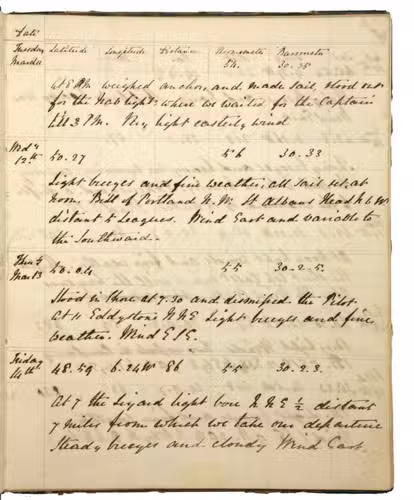 Date
Tuesday Latitude Longitude Distance Aerometer Barometer
March 11 54. 30.35
At 8 AM weighed anchor, and made sail, stood out
for the Nab light where we waited for the Captain
till 3 PM. Very light easterly wind
Wedy
12th 50.27 56 30.33
Light breezes and fine weather, all sail set, at
Noon. Bill of Portland N.W. St Albans Head N b W
distant 5 Leagues. Wind East and variable to
the Southward.
Thurs
Mar 13 50.04 55 30.25.
Stood in shore at 7.30 and dismissed the Pilot.
At 11 Eddystone N N E light breezes and fine
weather. Wind E S E.
Friday
14th 48.59 6.24W 86 55 30.23.
At 7 the Lizard light bore N N E ½ distant
7 miles from which we take our departure
Steady breezes and cloudy Wind East.